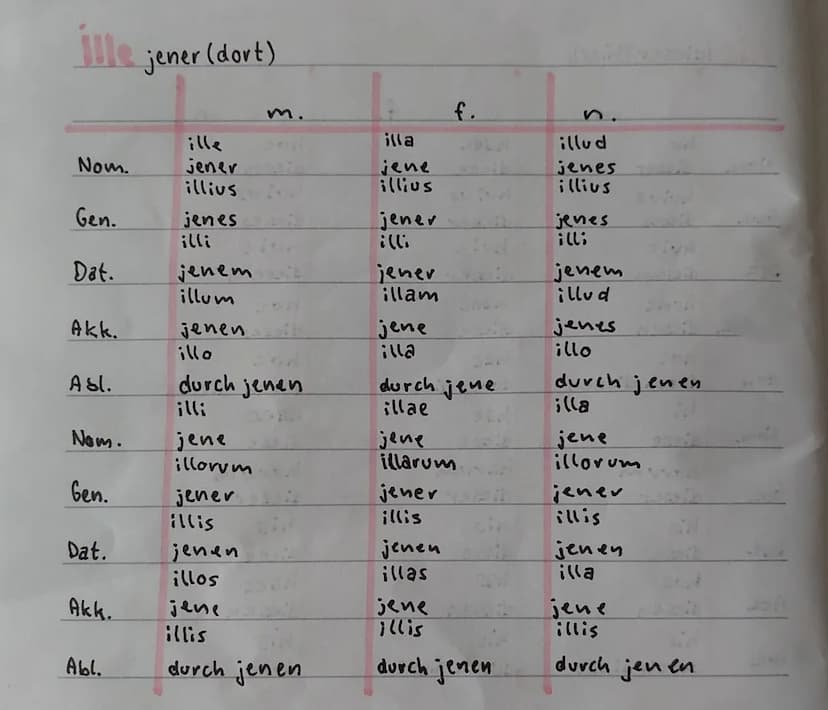 ille jener (dort)
m. f. n.
ille illa illud
Nom. jener jene jenes
illius illius illius
Gen. jenes jener jenes
illi illi illi
Dat. jenem jener jenem
illum illam illud
Akk. jenen jene jenes
illo illa illo
Abl. durch jenen durch jene durch jenen
illi illae illa
Nom. jene jene jene
illorum illarum illorum
Gen. jener jener jener
illis illis illis
Dat. jenen jenen jenen
illos illas illa
Akk. jene jene jene
illis illis illis
Abl. durch jenen durch jenen durch jenen